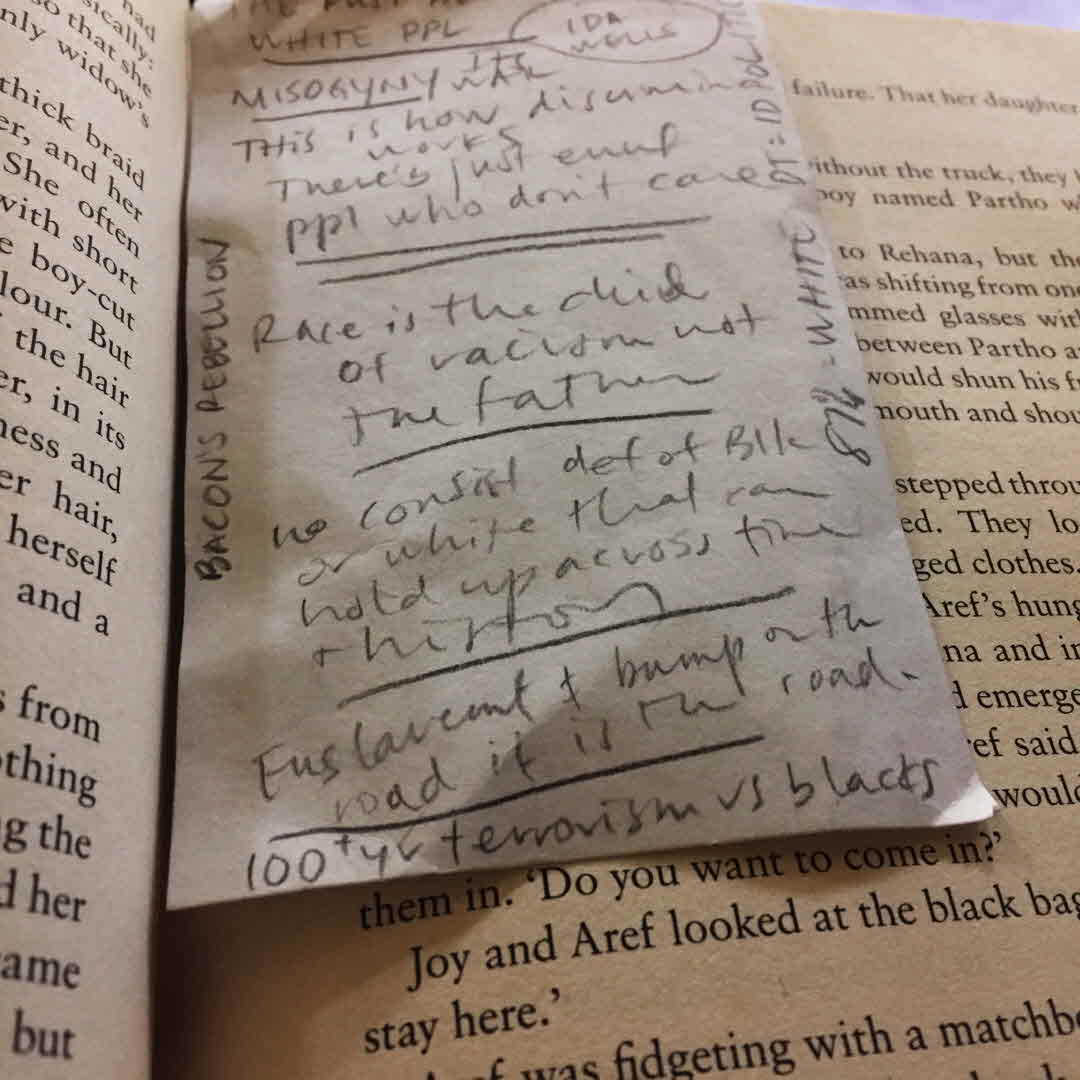 had
sically:
so that she
nly widow's
thick braid
er, and her
She often
with short
e boy-cut
lour. But
the hair
er, in its
ness and
er hair,
herself
and a
s from
othing
g the
d her
ame
but
WHITE PPL
IDA
WELLS
MISOGYNY
THis is how discrimin
works
There's just enuf
ppl who don't care
Race is the child
of racism not
the father
no consist def of Blk
or white that can
hold up across time
+ history
Enslavemt ≠ bump on the
road it is the road.
100+ yr terrorism vs blacks
BACON'S REBELLION
87% - WHITE
ID POLITC
failure. That her daughter
ithout the truck, they
boy named Partho w
to Rehana, but the
as shifting from one
mmed glasses with
between Partho a
would shun his fr
mouth and shou
stepped throu
ed. They lo
ged clothes.
Aref's hung
na and in
d emerge
ref said
would
them in. 'Do you want to come in?'
Joy and Aref looked at the black bag
stay here.'
was fidgeting with a matchbo